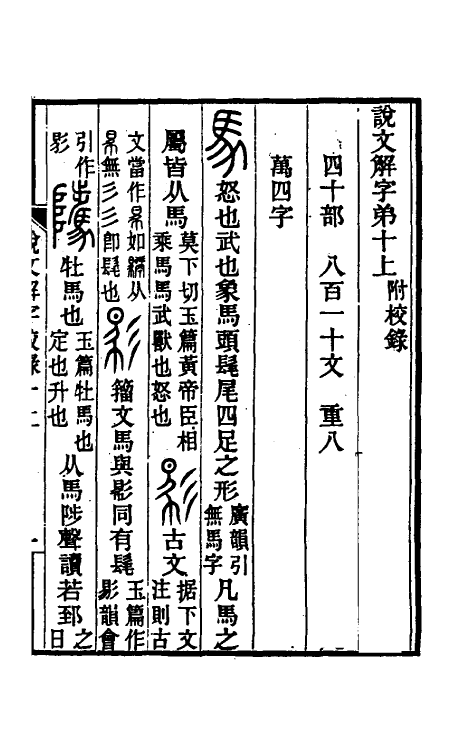 說文解字弟十上附校錄
四十部 八百一十文 重八
萬四字
馬怒也武也象馬頭髦尾四足之形廣韻引無馬字凡馬之
屬皆从馬莫下切玉篇黃帝臣相乘馬馬武獸也怒也古文据下文注則古
文當作影如𢒠从影無彡彡卽髦也籀文馬與影同有髦玉篇作影韻會
引作影牡馬也玉篇牡馬也定也升也从馬陟聲讀若郅之日
說文解字校錄十上